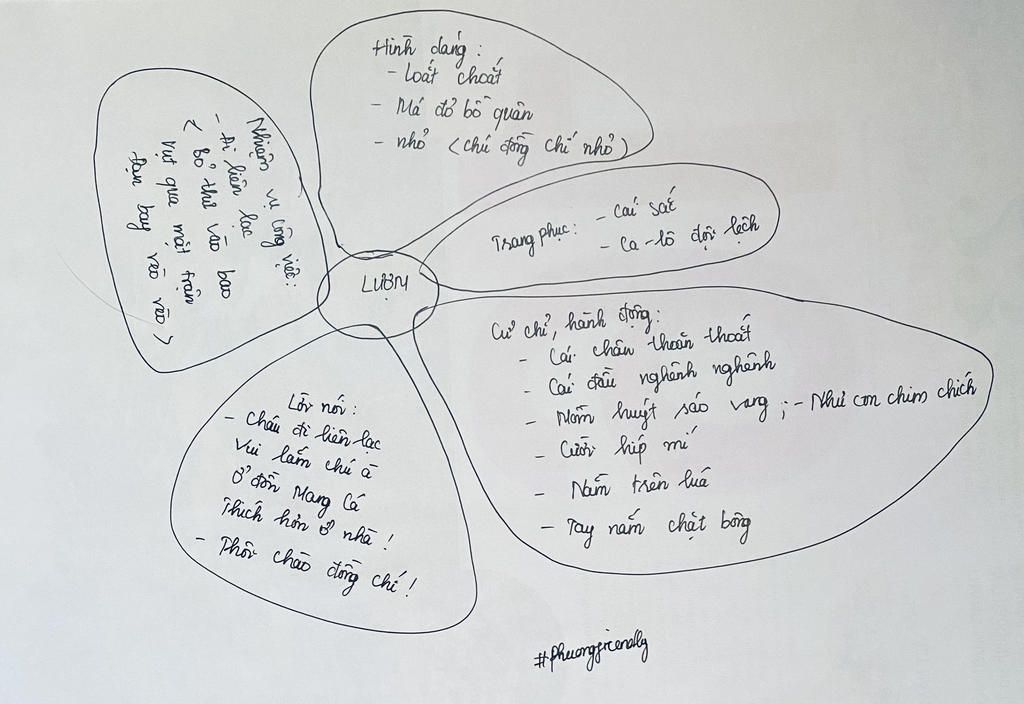 LƯỢM
Hình dáng:
- Loắt choắt
- Má đỏ bồ quân
- nhỏ <chú đồng chí nhỏ>
Trang phục: - Cái sắc
- Ca-lô đội lệch
Cử chỉ, hành động:
- Cái chân thoăn thoắt
- Cái đầu nghênh nghênh
- Mồm huýt sáo vang ; - Như con chim chích
- Cười híp mí
- Nằm trên lúa
- Tay nắm chặt bông
Lời nói:
- Cháu đi liên lạc
Vui lắm chú à
Ở đồn Mang Cá
Thích hơn ở nhà!
- Thôi chào đồng chí!
Nhiệm vụ công việc:
- Đi liên lạc
< bỏ thư vào bao
Vụt qua mặt trận
Đạn bay vèo vèo >